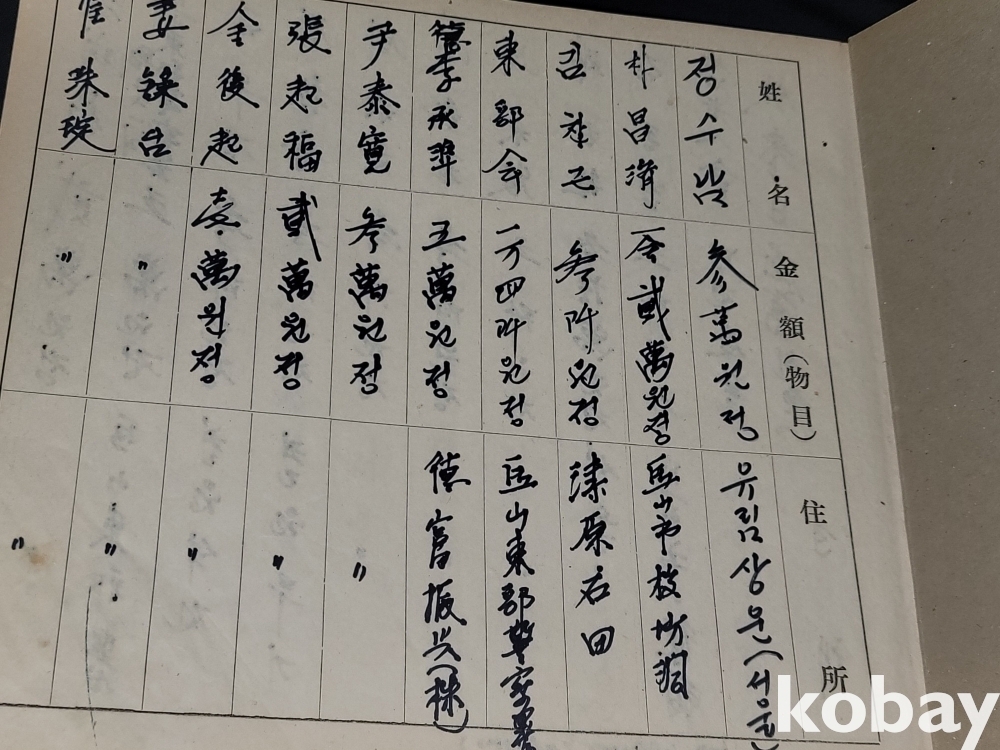 姓名 金額(物目) 住所
정수남 参萬원정 유림상운(서울)
朴昌濟 一金貳萬원정 馬山市校坊洞
김찬 参阡원정 漆原右田
東部会 一万四阡원정 馬山東部警察署
李承 五萬원정 德富振兴(株)
尹泰寬 参萬원정 〃
張起福 貳萬원정 〃
金後起 壱萬원정 〃
姜錄台 〃 〃
崔珠琔 〃 〃
kobay